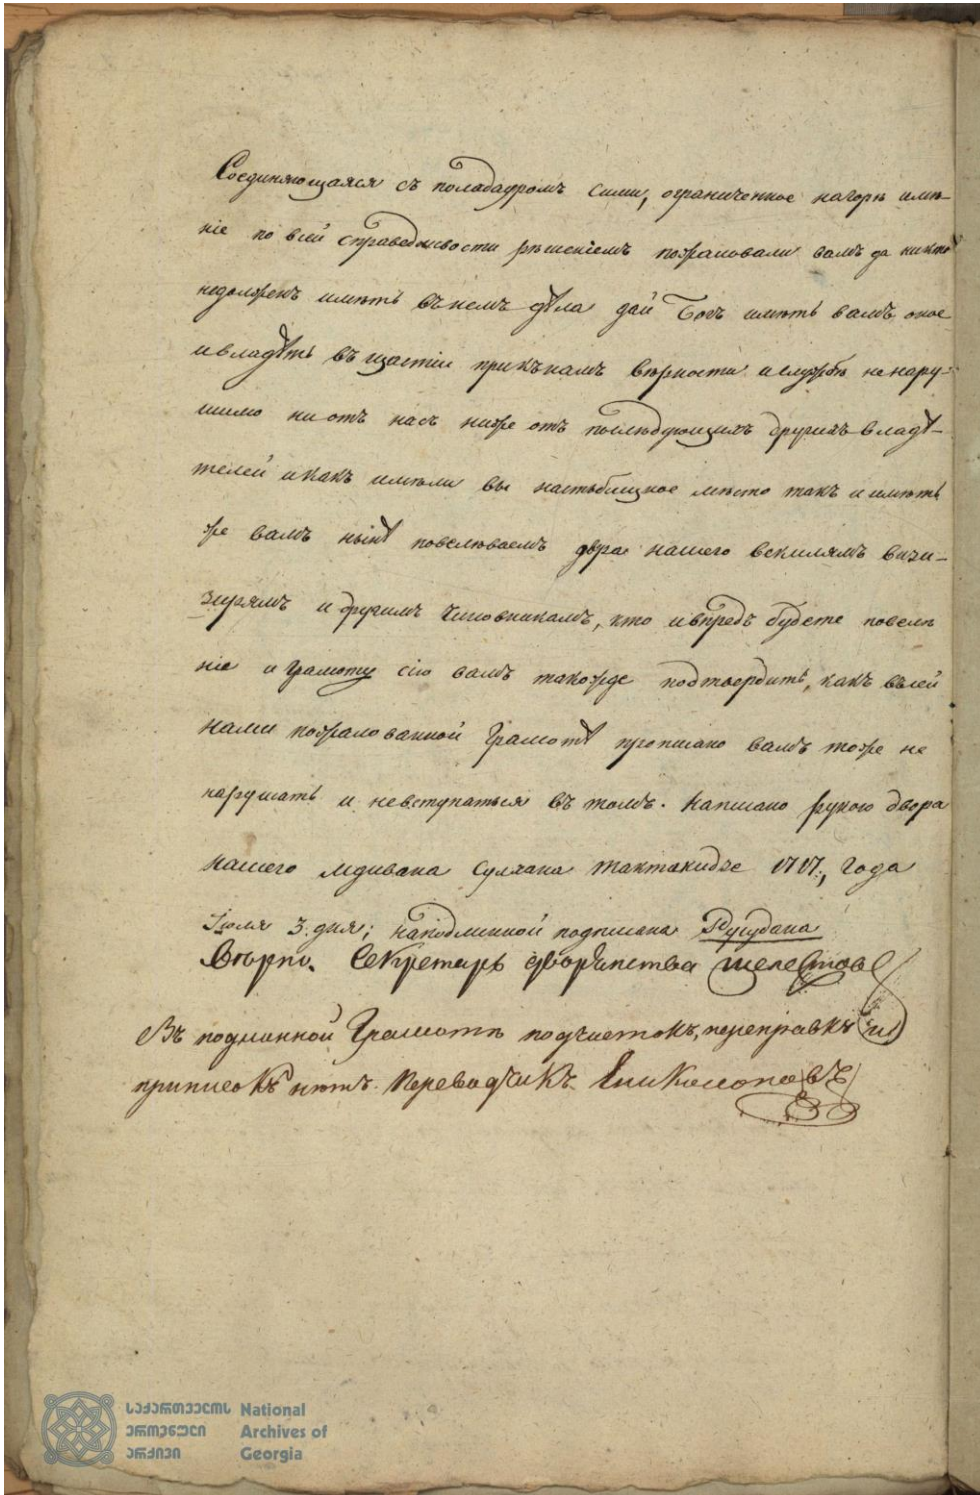 Соединяющаяся съ поладауромъ сими, ограниченное нагорѣ имѣ-
ніе по всей справедливости рѣшеніемъ пожаловали вамъ да никто
недолженъ имѣть въ немъ дѣла дай Богъ имѣть вамъ оное
и владѣть въ щастіи прикъ намъ вѣрности и службѣ не нару-
шимо ни отъ насъ ниже отъ послѣдующихъ другихъ владѣ-
телей и какъ имѣли вы мѣсто такъ и имѣть
же вамъ нынѣ повелѣваемъ двра нашего векилямъ вези-
зирямъ и другимъ чиновникамъ, кто и впредь будете повелѣ
ніе и грамоту сію вамъ такожде подтвердить, какъ въ сей
нами пожалованной грамотѣ прописано вамъ тоже не
нарушать и невступаться въ томъ. Написано рукою двора
нашего мдивана Сулхана Тактакидзе 1717., года
Іюля 3. дня; на подлинной подписана Русудана
Вѣрно. Секретарь дворянства Шелестовъ
Въ подлинной Грамотѣ подчистокъ, переправкъ и
приписокъ нѣтъ. Переводчикъ Ениколоповъ
საქართველოს National
ეროვნული Archives of
არქივი Georgia